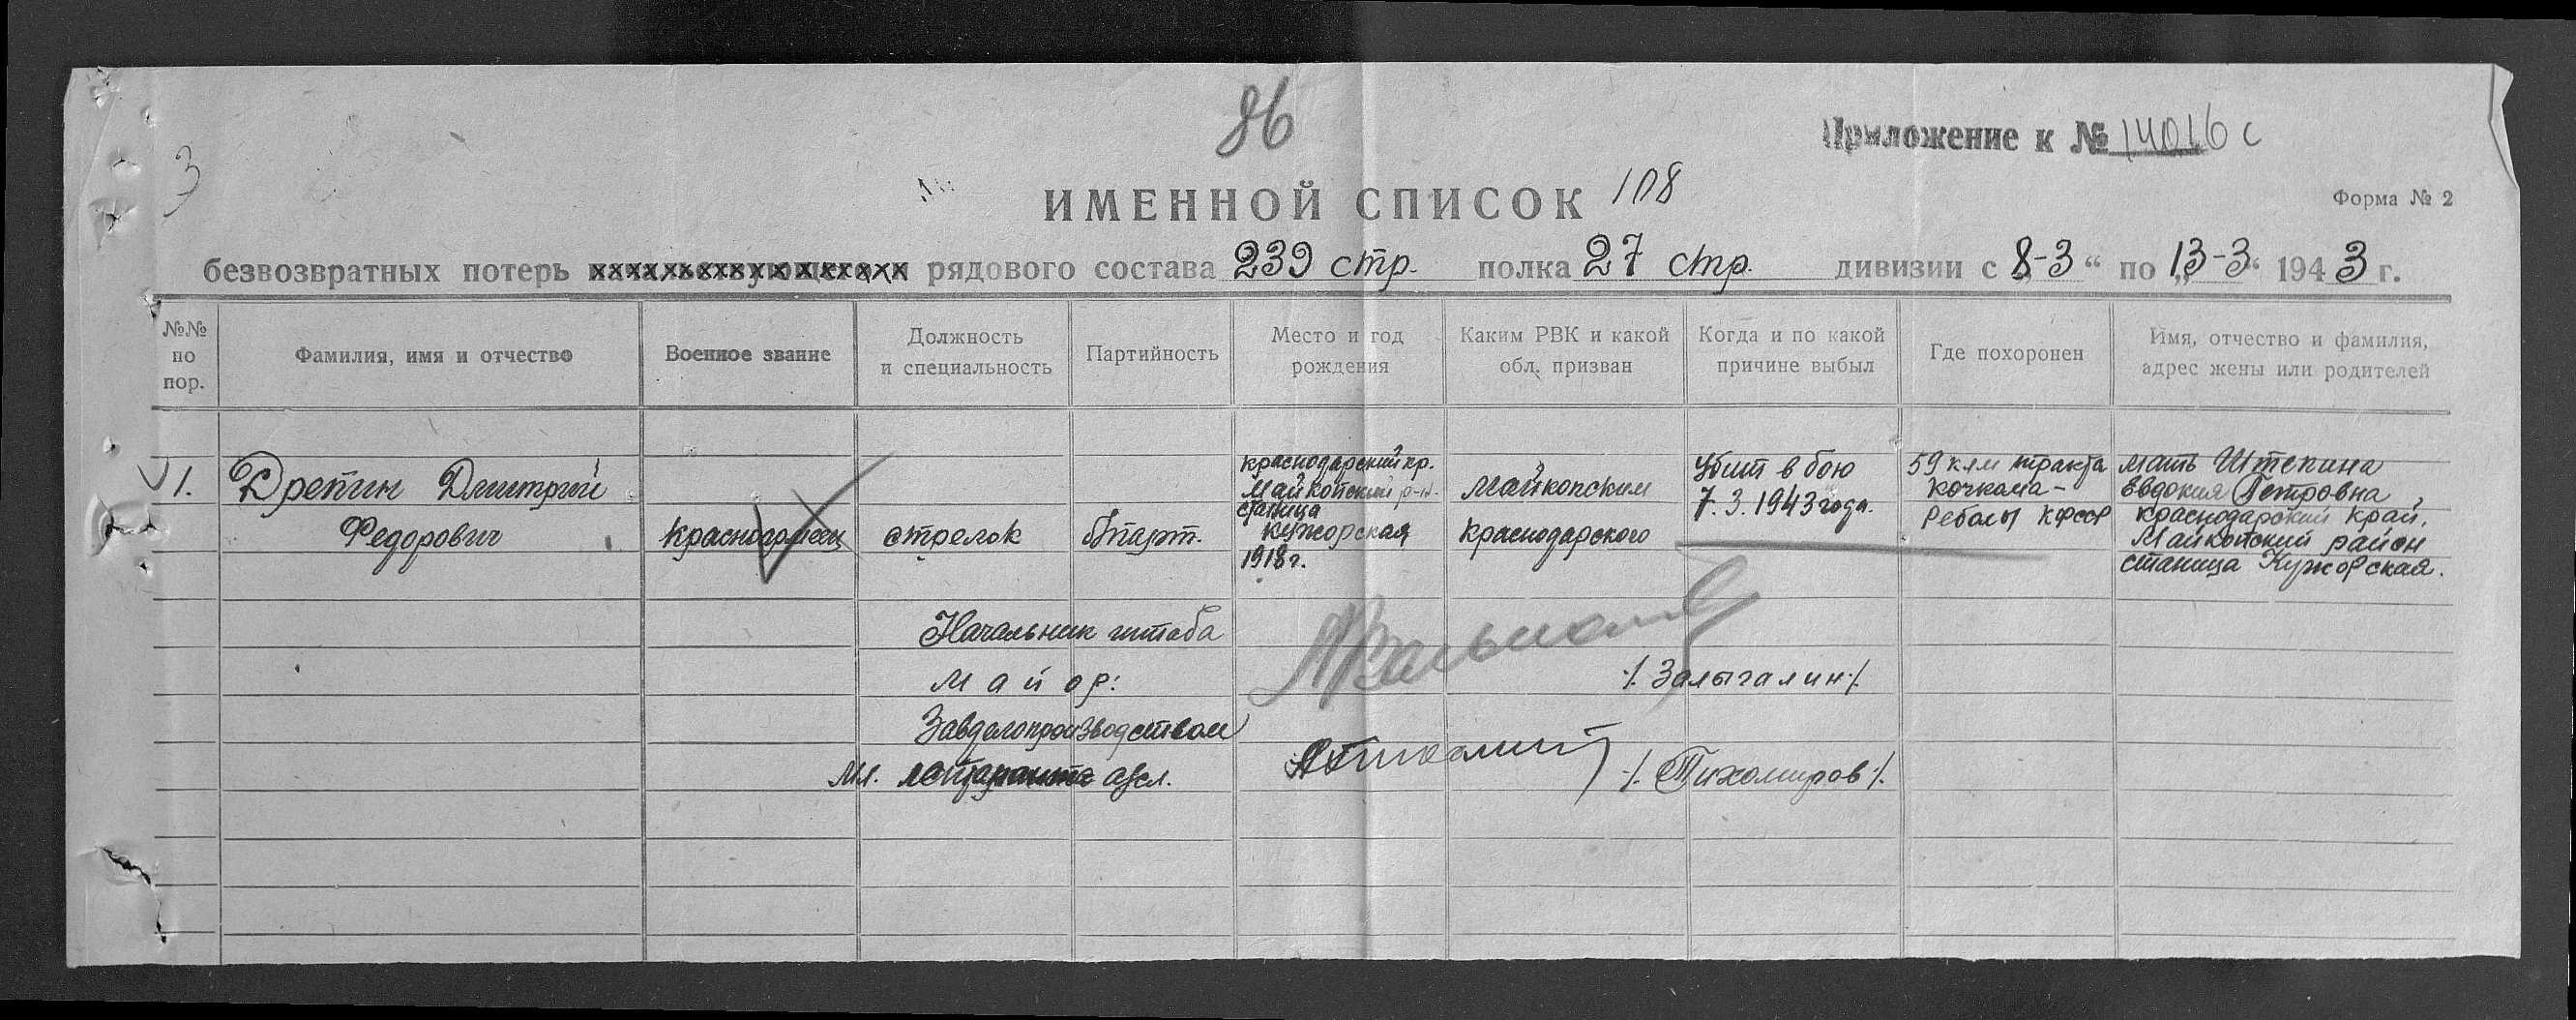 86
Приложение к № 14016с
3
ИМЕННОЙ СПИСОК 108
Форма № 2
безвозвратных потерь рядового состава 239 стр. полка 27 стр. дивизии с „8-3“ по „13-3“ 1943 г.
№№ по пор.
Фамилия, имя и отчество
Военное звание
Должность и специальность
Партийность
Место и год рождения
Каким РВК и какой обл. призван
Когда и по какой причине выбыл
Где похоронен
Имя, отчество и фамилия, адрес жены или родителей
1.
Дрепин Дмитрий
Федорович
красноармеец
стрелок
б/парт.
краснодарский кр.
Майкопский р-н.
станица
Кужорская
1918 г.
Майкопским
Краснодарского
Убит в бою
7.3.1943 года.
59 клм тракта
Кочкома-
Реболы КФССР
мать Штепина
Евдокия Петровна,
краснодарский край,
Майкопский район
станица Кужорская.
Начальник штаба
Майор: /Залыгалин/
Завделопроизводством
Мл. лейтенант а/сл. /Тихомиров/